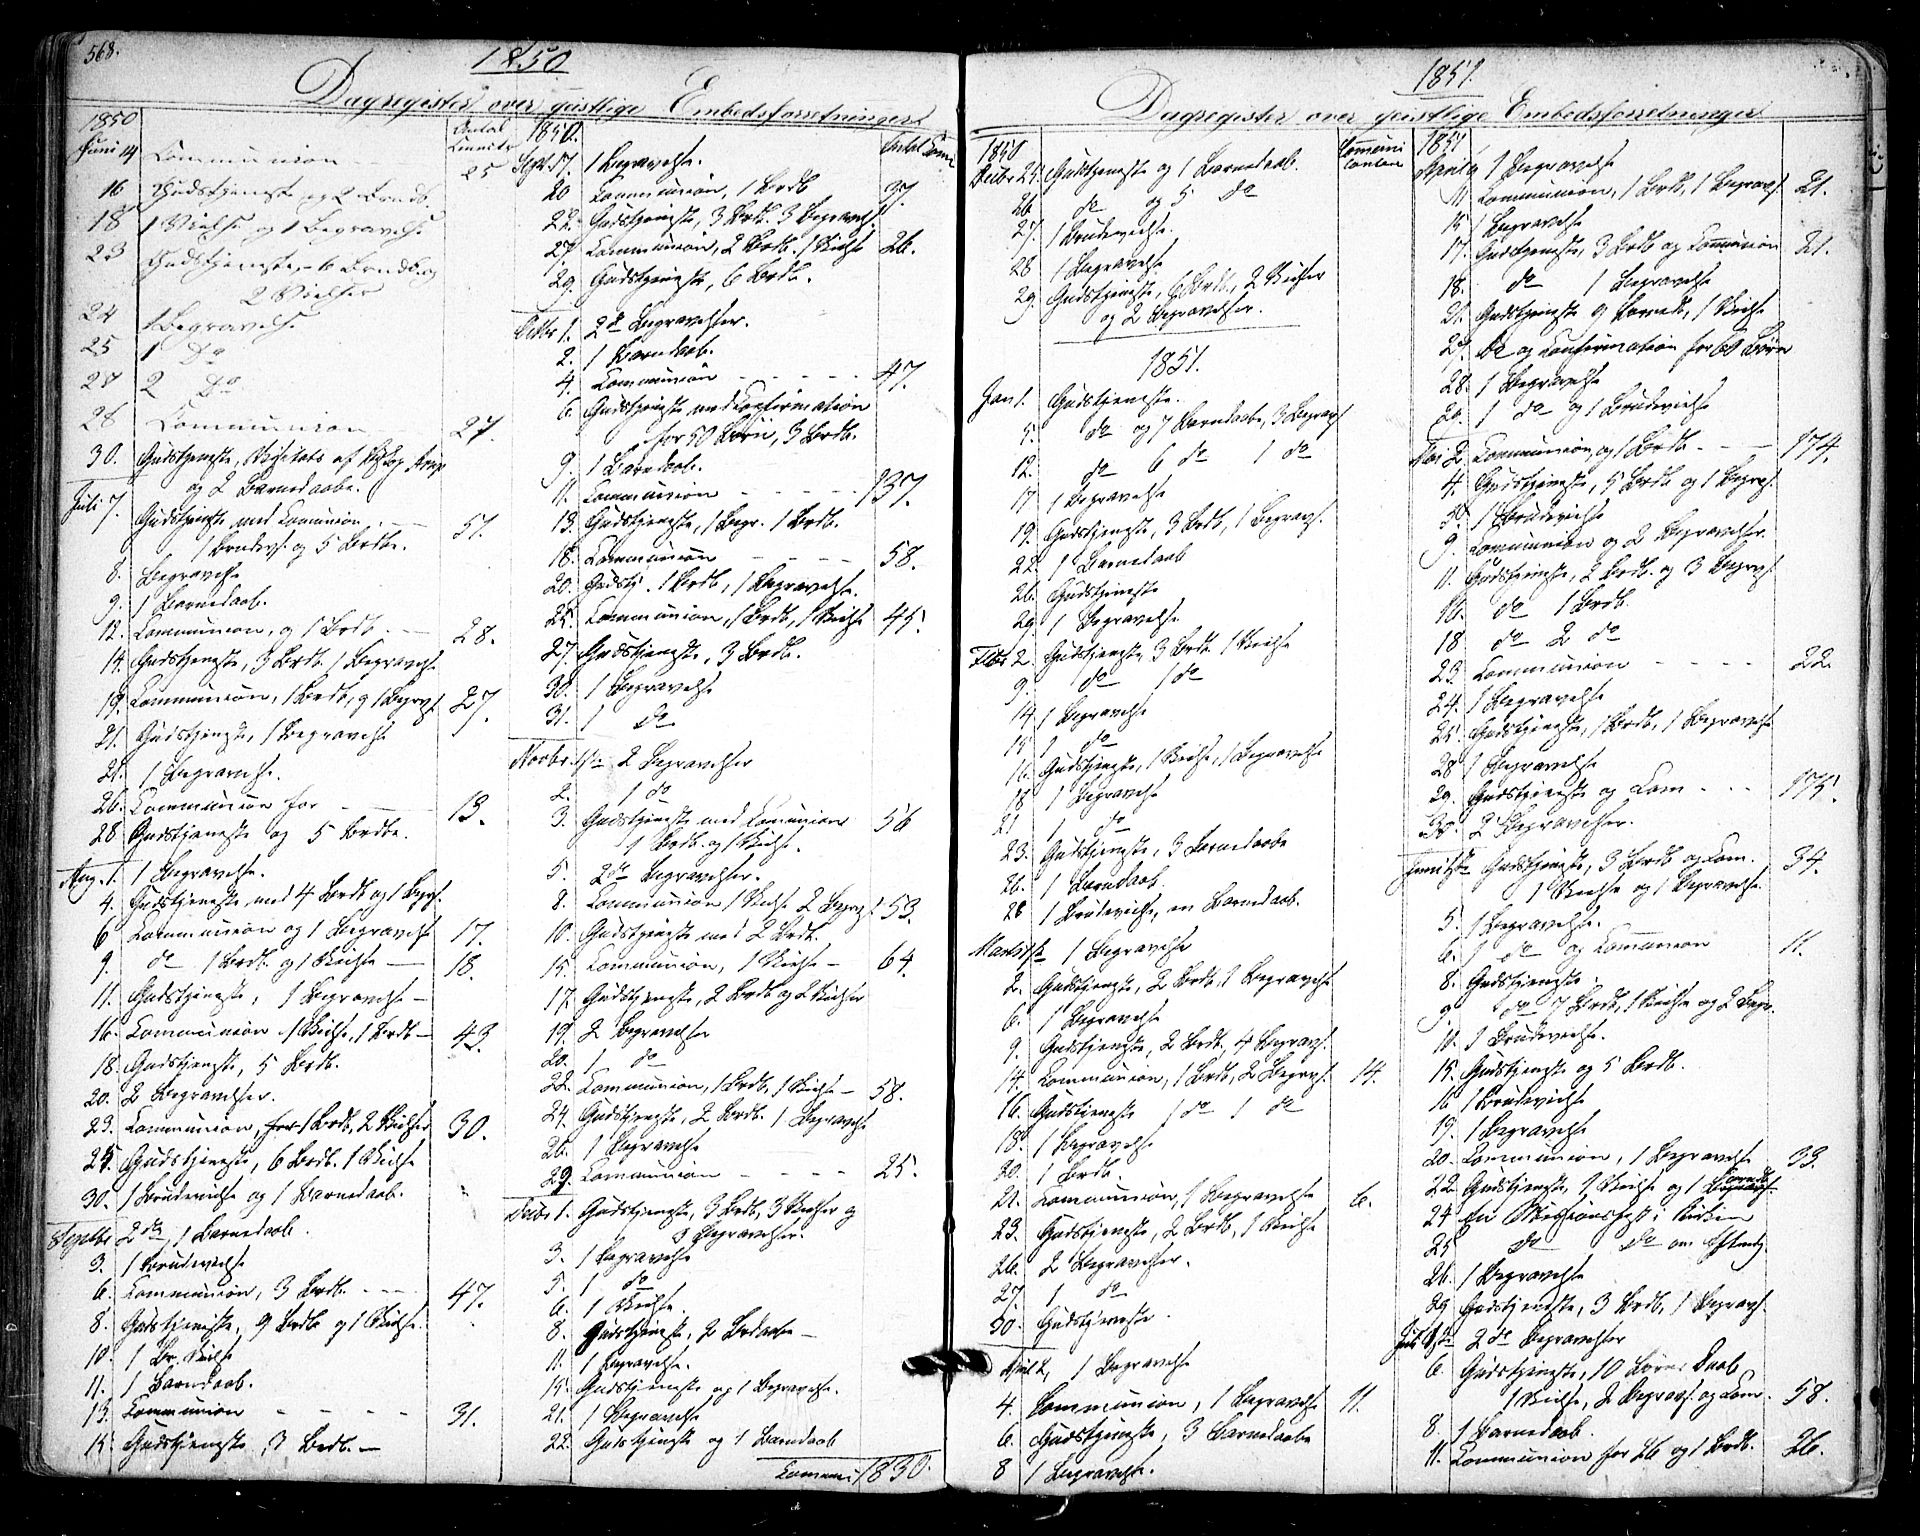 568.
1850
Dagregister over geistlige Embedsforretninger
1850
Juni 14 Communion 25
16 Gudstjeneste og 2 Brndb.
18 1 Vielse og 1 Begravelse
23 Gudstjeneste, 6 Brndb. og
2 Vielser
24 1 Begravelse
25 1 Do
27 2 Do
28 Communion 27.
30. Gudstjeneste, Visitats af Biskop Arup
og 2 Barnedaabe.
Juli 7. Gudstjenste med Comunion 57.
1 Brudev. og 5 Brdbe.
8. Begravelse
9. 1 Barnedaab.
12. Communion, og 1 Brdb. 28.
14. Gudstjeneste, 3 Brdb. 1 Begravelse
19. Communion, 1 Brdb, og 1 Begrvs. 27.
21. Gudstjeneste, 1 Begravelse
21. 1 Begravelse.
26. Communion for 13.
28 Gudstjeneste og 5 Brdbe.
Aug. 1. 1 Begravelse.
4. Gudstjeneste med 4 Brdb og 1 Begrs.
6 Communion og 1 Begravelse 17.
9. do 1 Brdb. og 1 Vielse 18.
11. Gudstjeneste, 1 Begravelse
16. Communion 1 Vielse, 1 Brdb 43.
18. Gudstjeneste, 5 Brdb.
20. 2 Begravelser.
23. Communion, for 1 Brdb, 2 Vielser 30.
25. Gudstjeneste, 6 Brdb. 1 Vielse
30. 1 Brudevielse og 1 Barnedaab.
Septbr 2 do, 1 Barnedaab.
3. 1 Brudevielse
6. Communion, 3 Brdb. 47.
8. Gudstjeneste, 9 Brdb og 1 Vielse.
10. 1 Br. Vielse
11. 1 Barnedaab.
13. Communion 31.
15. Gudstjeneste, 3 Brdb.
1850.
Sept. 17. 1 Begravelse.
20 Communion, 1 Brdb 37.
22. Gudstjeneste, 3 Brdb. 3 Begravels.
27. Communion, 2 Brdb. 1 Vielse 26.
29. Gudstjeneste, 6 Brdb.
Octbr 1. 2 do Begravelser.
2. 1 Barnedaab.
4. Communion 47.
6. Gudstjeneste med Confirmation
for 50 Børn, 3 Brdb.
9. 1 Barnedaab.
11. Communion 137.
13. Gudstjeneste, 1 Begr. 1 Brdb.
18. Communion 58.
20. Gudstj. 1 Brdb, 1 Begravelse.
25. Communion, 1 Brdb, 1 Vielse 45.
27. Gudstjeneste, 3 Brdb.
30. 1 Begravelse
31. 1 do
Novbr. 1ste 2 Begravelser
2. 1 do
3. Gudstjeneste med Comunion 56
1 Brdb. og 1 Vielse.
5. 2 do Begravelser.
8. Communion 1 Vielse 2 Begrvs. 53.
10. Gudstjeneste med 2 Brdb.
15. Communion, 1 Vielse 64.
17. Gudstjeneste, 2 Brdb og 2 Vielser
19. 2 Begravelser
20. 1 do
22. Communion, 1 Brdb, 1 Vielse 58.
24. Gudstjeneste, 2 Brdb. 1 Begravelse
26. 1 Begravelse
29. Communion 25.
Decbr 1. Gudstjeneste, 3 Brdb, 3 Vielser og
3 Begravelser.
3. 1 Begravelse
5. 1 do
6. 1 Vielse.
8. Gudstjeneste, 2 Brdaabe
11. 1 Begravelse.
15. Gudstjeneste og 1 Begravelse.
21. 1 Begravelse
22. Gudstjeneste og 1 Barnedaab
Commu: 1830.
1851.
Dagregister over geistlige Embedsforretninger
1850
Communicantere
Decbr 25. Gudstjeneste og 1 Barnedaab.
26. do og 5 do
27. 1 Brudevielse.
28 1 Begravelse
29. Gudstjeneste, 6 Brdb, 2 Vielser
og 2 Begravelser.
1851.
Jan 1. Gudstjeneste.
5. do og 7 Barnedaabe, 3 Begravs
12. do 6 do 1 do
17 1 Begravelse
19. Gudstjeneste, 3 Brdb, 1 Begravs.
22. 1 Barnedaab
26. Gudstjeneste
29. 1 Begravelse
Febr 2. Gudstjeneste, 3 Brdb. 1 Vielse
9. do 1 do
14. 1 Begravelse
15 1 do
16. Gudstjeneste, 1 Vielse, 1 Begravelse
18 1 Begravelse
21 1 do
23. Gudstjeneste, 3 Barnedaabe
26. 1 Barnedaab.
28 1 Brudevielse, en Barnedaab.
Marts 1ste 1 Begravelse
2. Gudstjeneste, 2 Brdb, 1 Begravelse
6. 1 Begravelse
9. Gudstjeneste, 2 Brdb, 4 Begravs.
14. Communion, 1 Brdb, 2 Begrvs. 14.
16. Gudstjeneste 1 do 1 do
18. 1 Begravelse
20. 1 Brdb.
21. Communion, 1 Begravelse 6.
23. Gudstjeneste, 2 Brdb, 1 Vielse
26. 2 Begravelser.
27. 1 do
30. Gudstjeneste.
April 2, 1 Begravelse
4. Communion, 1 Begravelse 11.
6. Gudstjeneste, 3 Barnedaabe
8 1 Begravelse.
1851
April 9 1 Begravelse
11 Communion, 1 Brdb, 1 Begravs. 21.
15 1 Begravelse
17. Gudstjeneste, 3 Brdb og Communion 21.
18. do 1 Begravelse
21. Gudstjeneste 9 Barned., 1 Vielse
27. do og Confirmation for 60 Børn
28. 1 Begravelse
29. 1 do og 1 Brudevielse
Mai 2 Communion, og 1 Brdb. 174.
4. Gudstjeneste, 5 Brdb og 1 Begravs.
5. 1 Brudevielse
9. Communion og 2 Begravelser.
11. Gudstjeneste, 2 Brdb. og 3 Begrvs.
16. do 1 Brdb.
18 do 2 do
23. Communion 22.
24. 1 Begravelse
25. Gudstjeneste, 1 Brdb, 1 Begravelse
28 1 Begravelse
29. Gudstjeneste og Com 175.
30. 2 Begravelser.
Juni 1ste Gudstjeneste, 3 Brdb og Com. 34.
1 Vielse og 1 Begravelse.
5. 1 Begravelse
6. 1 do og Communion 11.
8. Gudstjeneste
9 do 7 Brdb, 1 Vielse og 2 Begr.
10. 1 Brudevielse.
15. Gudstjeneste og 5 Brdb.
16 1 Brudevielse
19. 1 Begravelse
20. Communion, 1 Begravelse 33.
22 Gudstjeneste, 1 Vielse og 1 Barnedb
24 En Missionsfest i Kirken
25 do do om Eftmdg.
26. 1 Begravelse
29 Gudstjeneste, 3 Brdb, 1 Begravs.
Juli 1ste 2 do Begravelser
6. Gudstjeneste, 10 Børns Daab
1 Vielse, 2 Begravs. og Com. 58.
8. 1 Barnedaab.
11. Communion for 26 og 1 Brdb. 26.